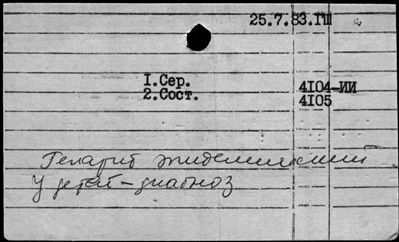 25.7.83.ГШ
1.Сер.
2.Сост.
4104-ИИ
4105
Гепатит эпидемический
у детей - диагноз